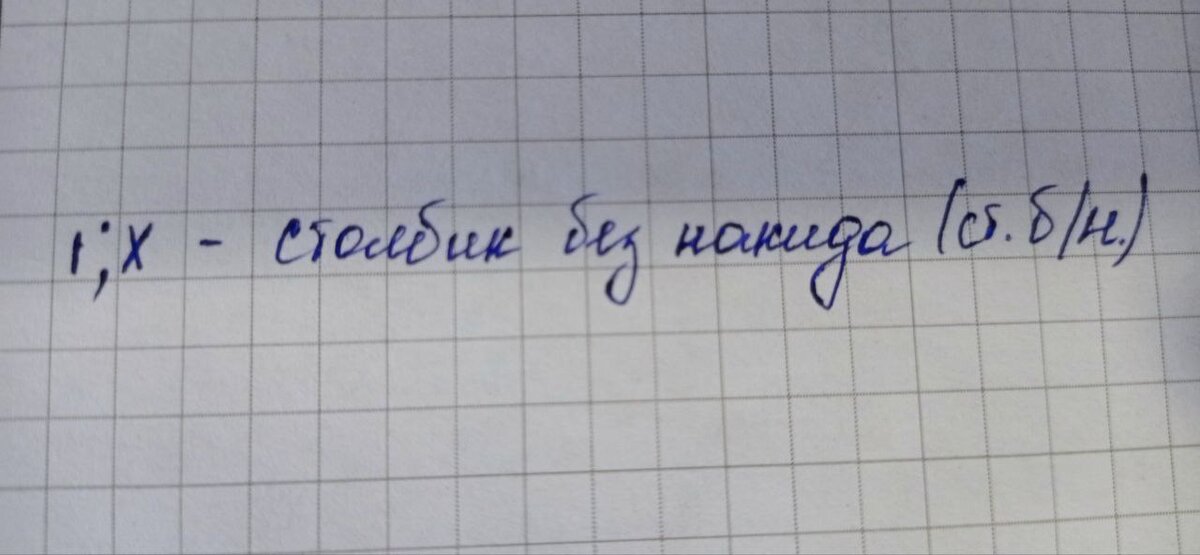 ı; x - столбик без накида (ст. б/н.)